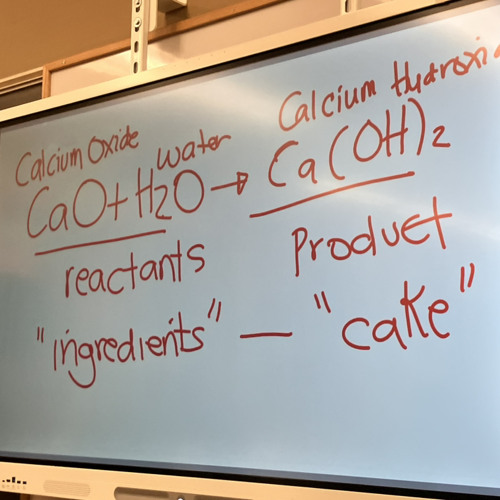 Calcium Oxide water Calcium Hydroxi
CaO + H2O → Ca(OH)2
reactants Product
"ingredients" — "cake"